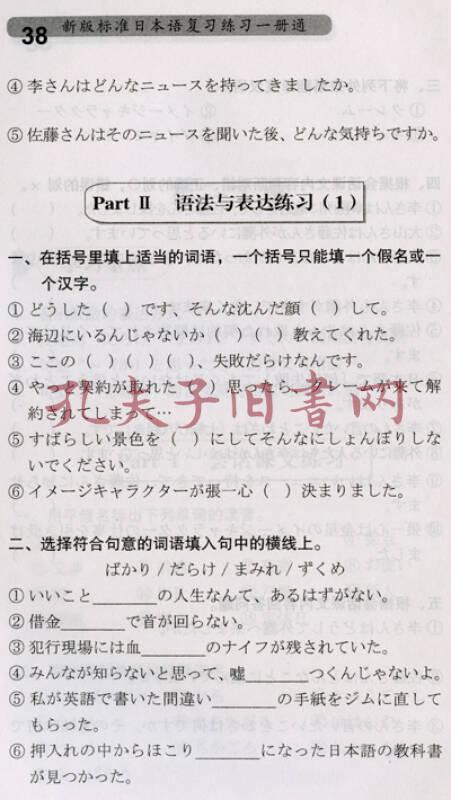 38 新版标准日本语复习练习一册通
④ 李さんはどんなニュースを持ってきましたか。
⑤ 佐藤さんはそのニュースを聞いた後、どんな気持ちですか。
Part Ⅱ 语法与表达练习（1）
一、在括号里填上适当的词语，一个括号只能填一个假名或一
个汉字。
① どうした（ ）です、そんな沈んだ顔（ ）して。
② 海辺にいるんじゃないか（ ）（ ）教えてくれた。
③ ここの（ ）（ ）（ ）、失敗だらけなんです。
④ やっと契約が取れた（ ）思ったら、クレームが来て解
約されてしまって…
⑤ すばらしい景色を（ ）にしてそんなにしょんぼりしな
いでください。
⑥ イメージキャラクターが張一心（ ）決まりました。
二、选择符合句意的词语填入句中的横线上。
ばかり / だらけ / まみれ / ずくめ
① いいこと______の人生なんて、あるはずがない。
② 借金______で首が回らない。
③ 犯行現場には血______のナイフが残されていた。
④ みんなが知らないと思って、嘘______つくんじゃないよ。
⑤ 私が英語で書いた間違い______の手紙をジムに直して
もらった。
⑥ 押入れの中からほこり______になった日本語の教科書
が見つかった。
孔夫子旧书网